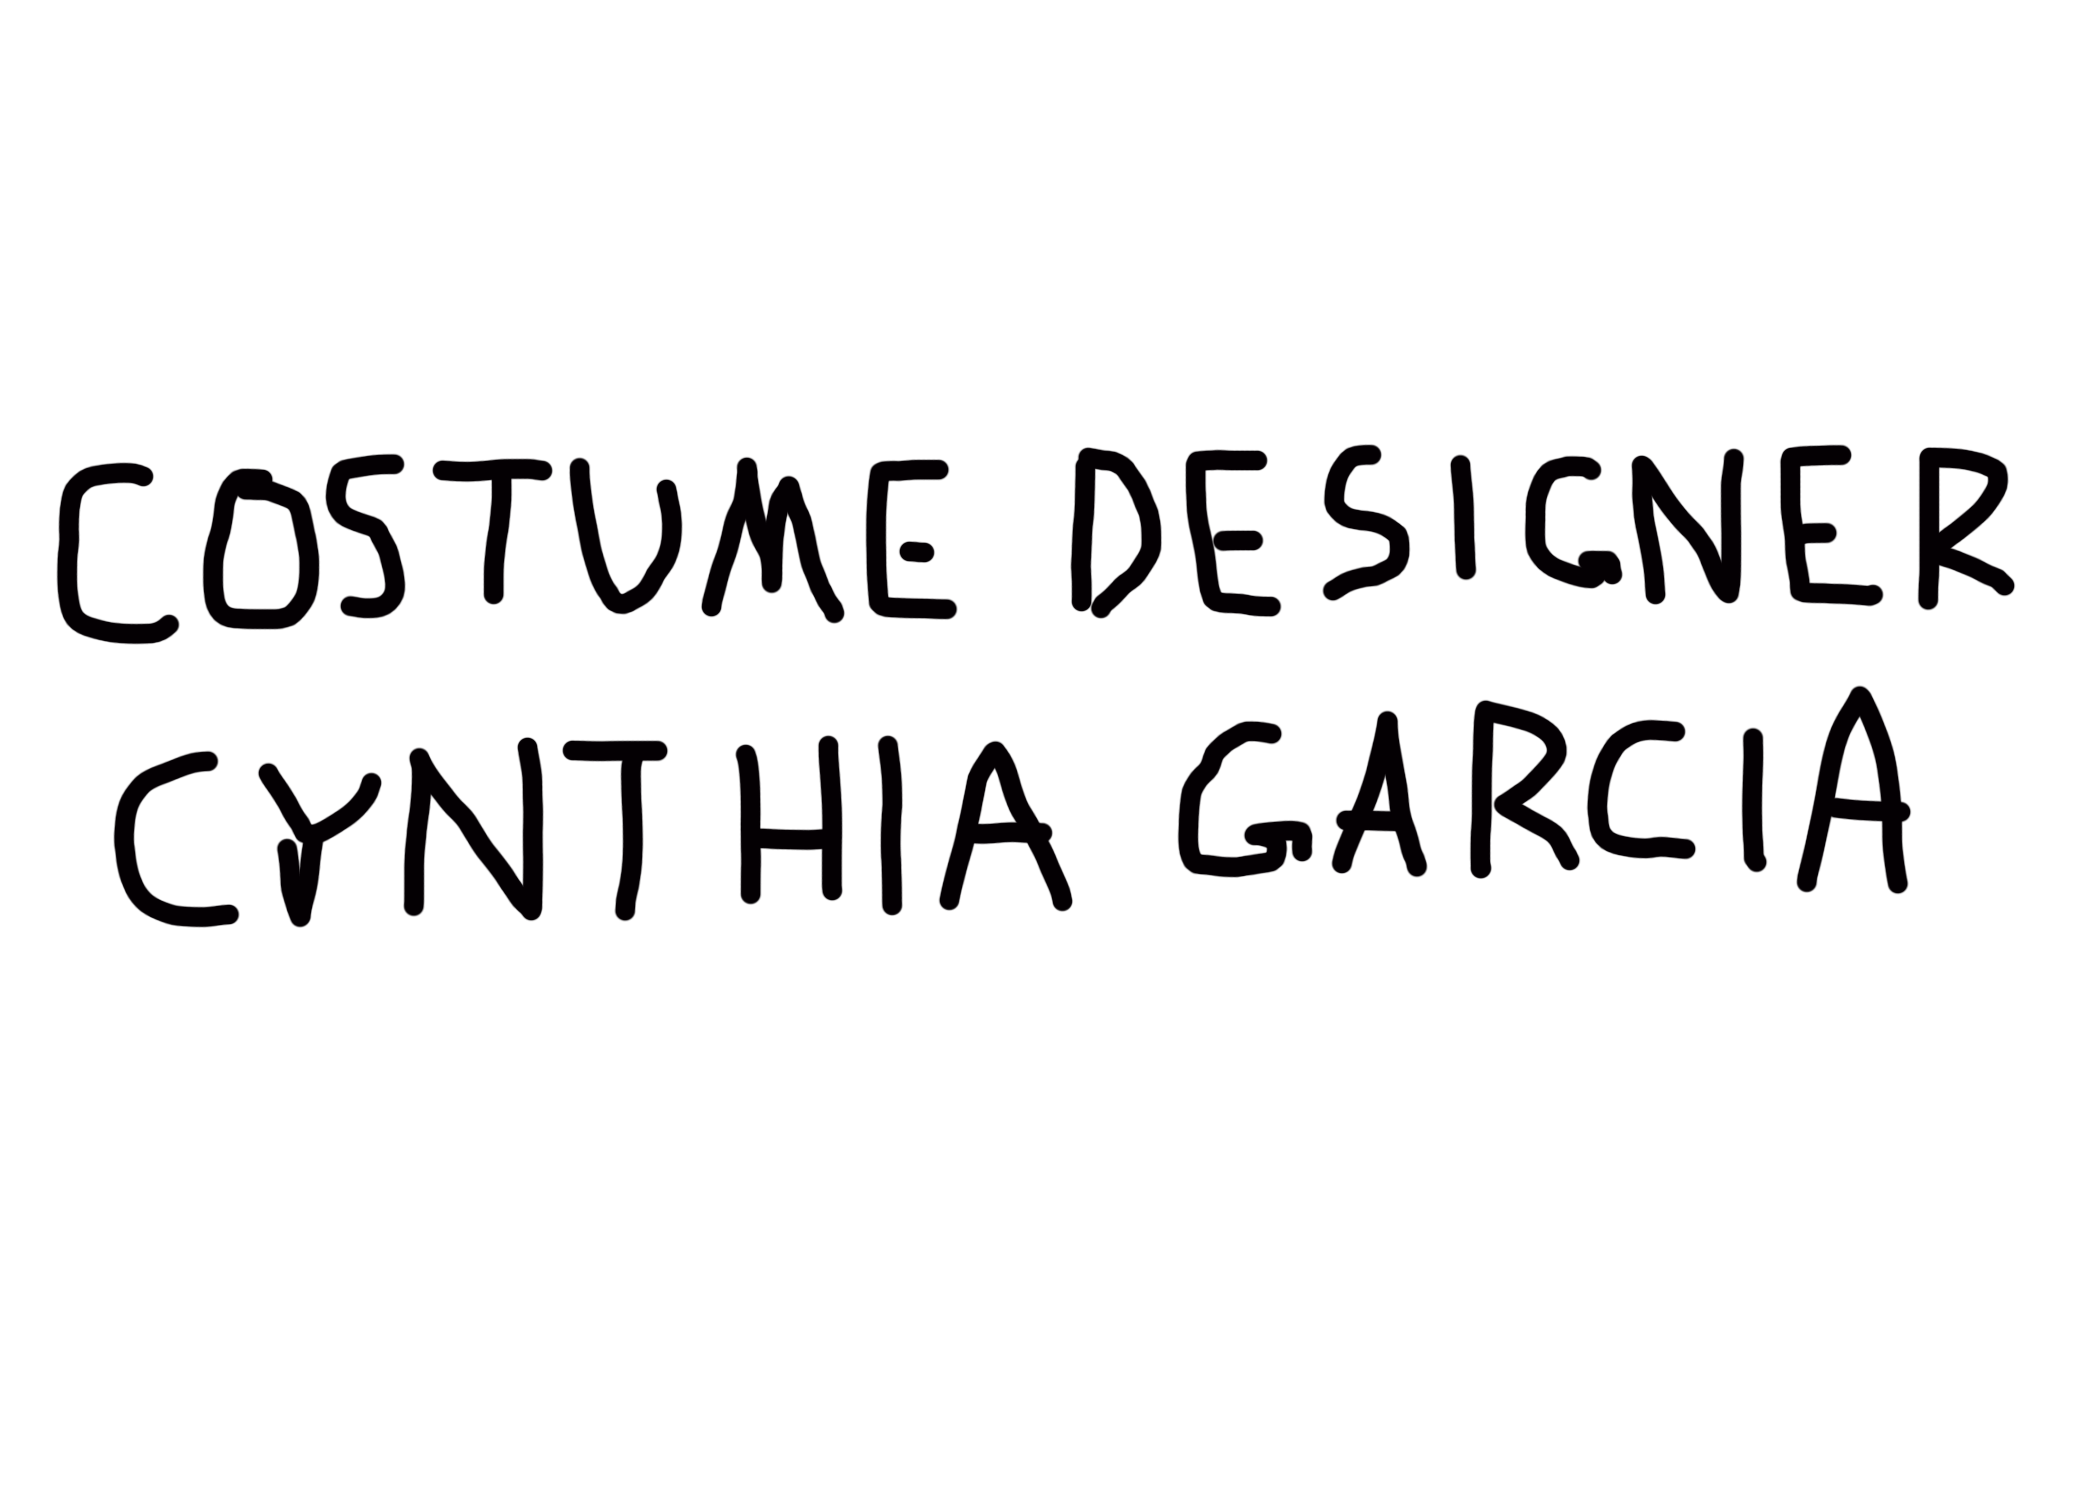 COSTUME DESIGNER
CYNTHIA GARCIA